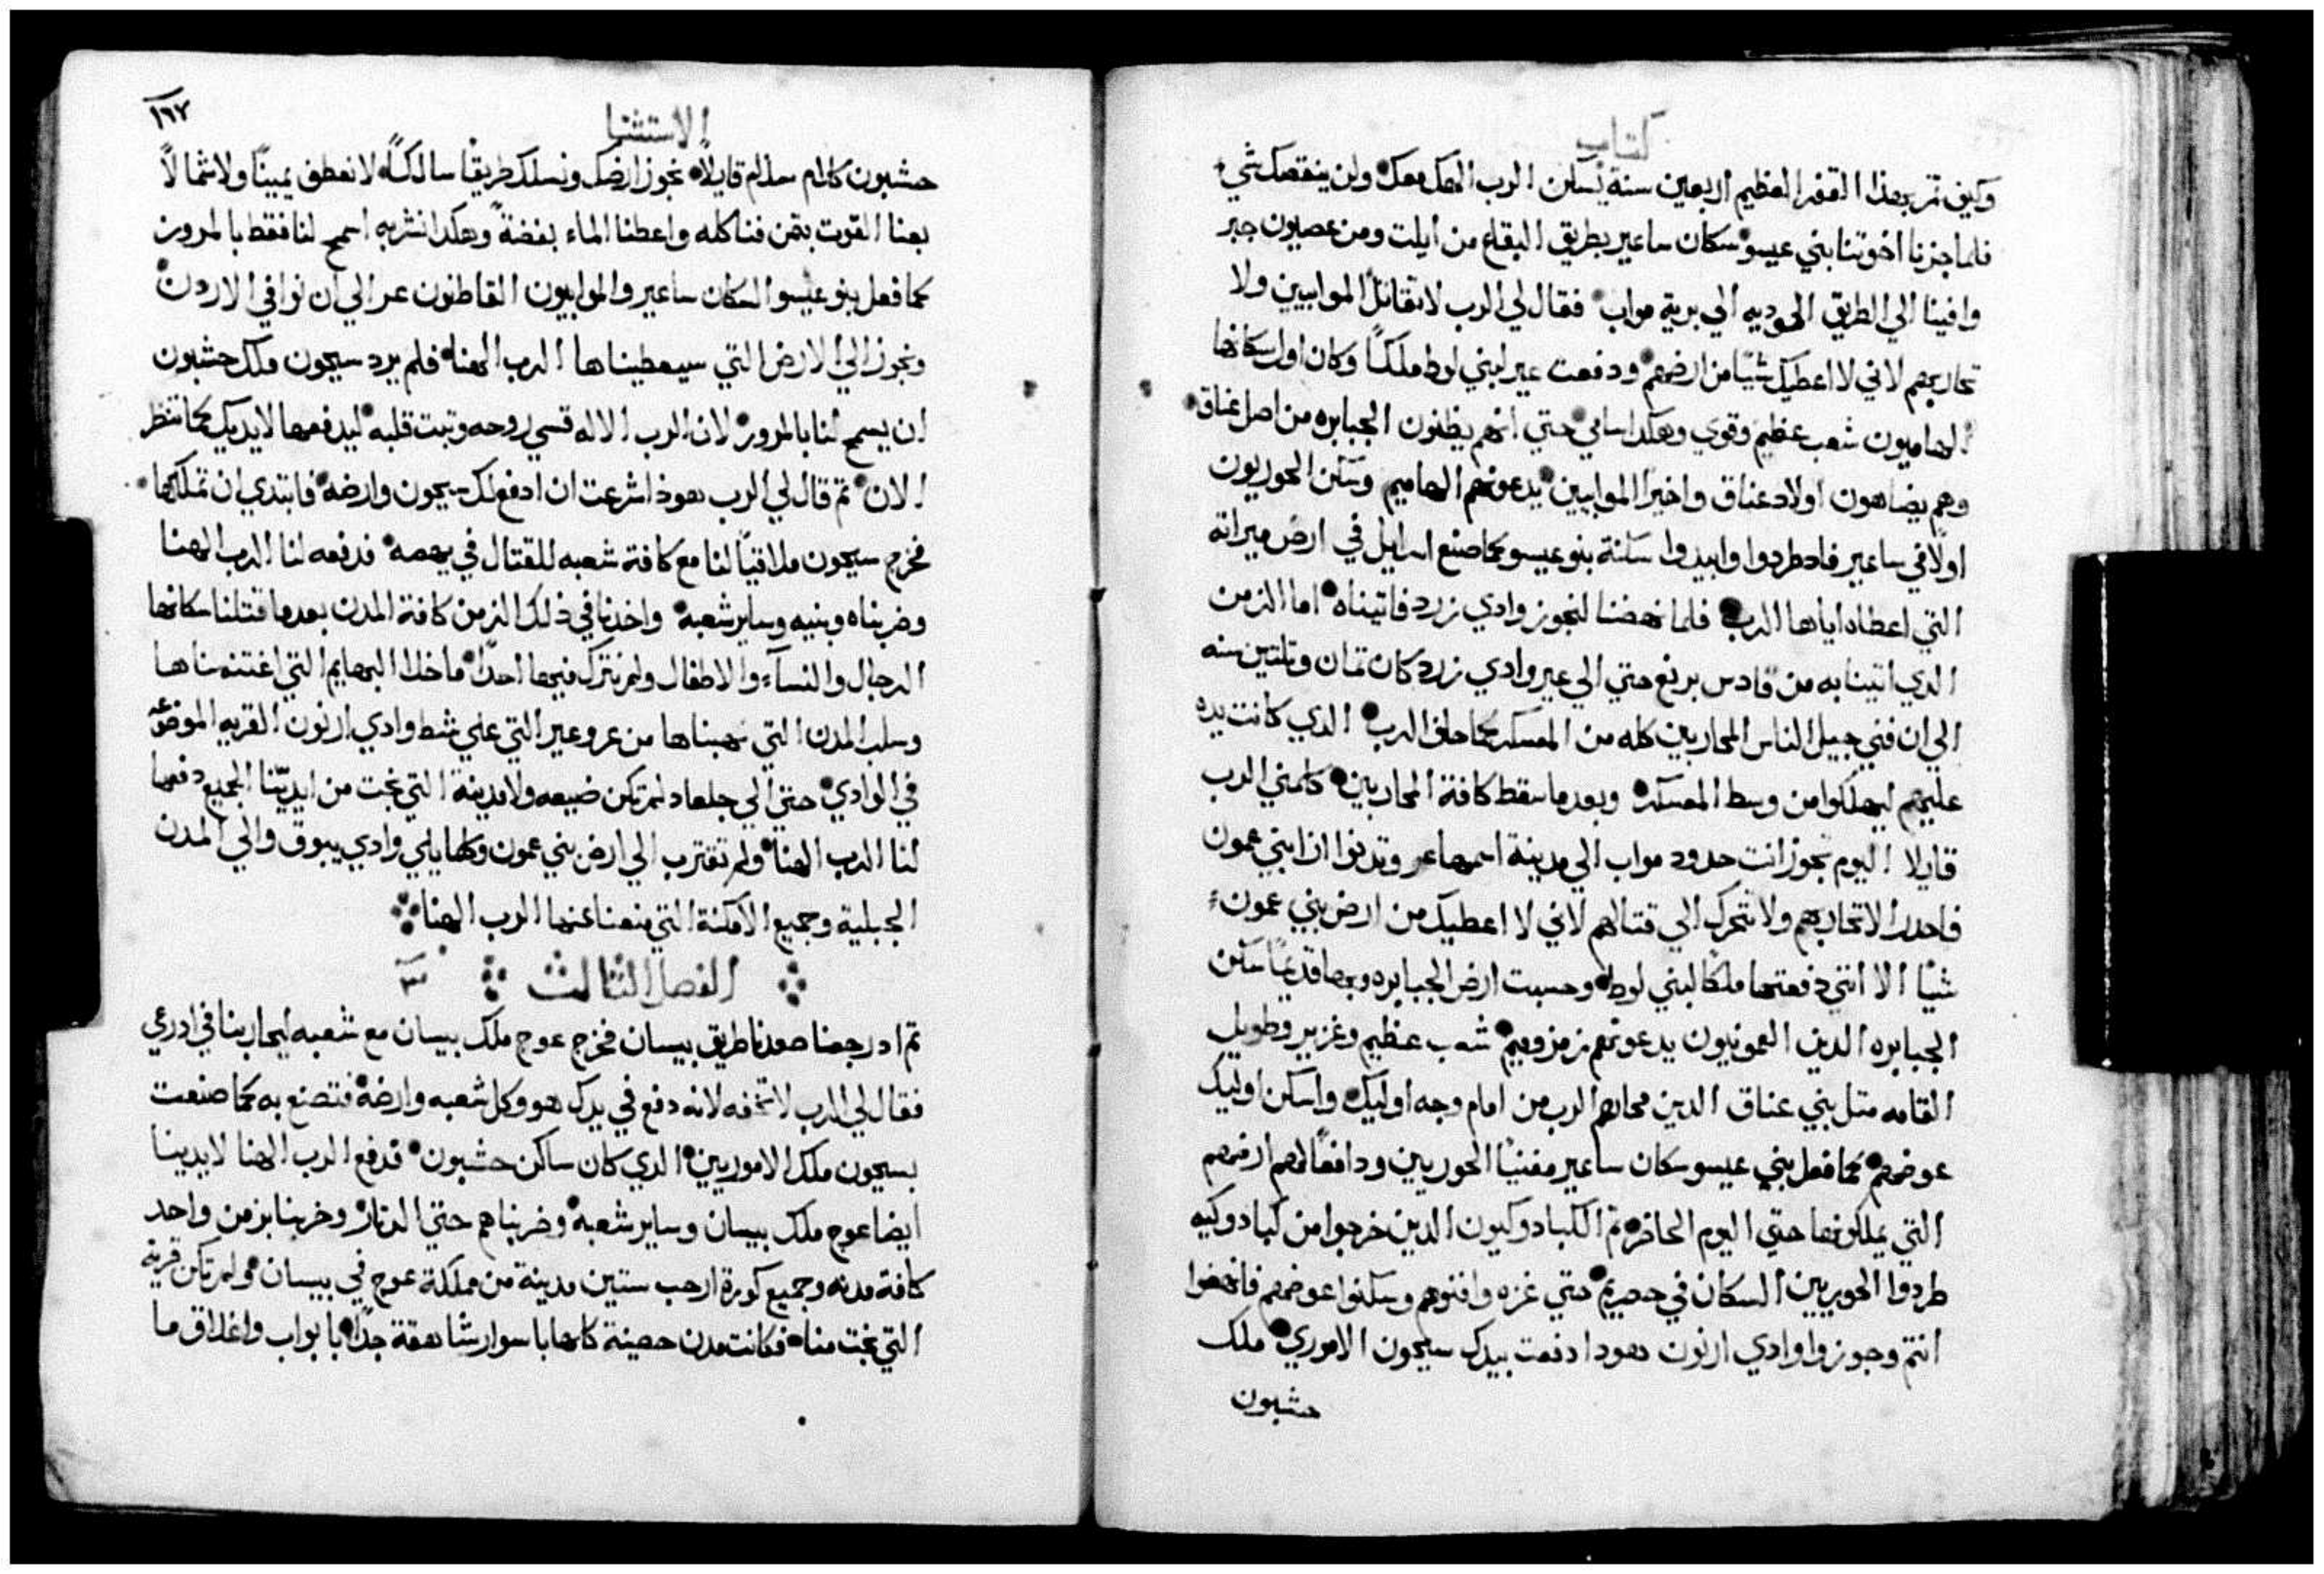 كتاب
وكيف تمر بهذا القفر العظيم اربعين سنة يسكن الرب الهك معك ولن ينقصك شي
فلما جزنا اخوتنا بني عيسو سكان ساعير بطريق البقاع من أيلت ومن عصيون جبر
وافينا الي الطريق الموديه الي برية مواب فقال لي الرب لا تقاتل الموابيين ولا
تحاربهم لاني لا اعطيك شيًا من ارضهم ودفعت عير لبني لوط ملكًا وكان اول سكانها
الهاميون شعب عظيم وقوي وهكدا سامي حتي انهم يظنون الجبابره من اصل عناق
وهم يضاهون اولاد عناق واخيرًا الموابيين يدعونهم الهاميم وسكن الحوريون
اولًا في ساعير فادطردوا وابيدوا سكنة بنو عيسو كما صنع اسرايل في ارض ميراته
التي اعطاه اياها الرب فلما نهضنا لنجوز وادي زرد فاتيناه اما الزمن
الدي اتينا به من قادس برنع حتي الي عبر وادي زرد كان تمان وتلتين سنه
الي ان فني جيل الناس المحاربين كله من المعسكر كما حلف الرب الدي كانت يده
عليهم ليهلكوا من وسط المعسكر وبعدما سقط كافة المحاربين كلمني الرب
قايلا اليوم تجوز انت حدود مواب الي مدينة اسمها عر وتدنوا ان ابني عمون
فاحدر الا تحاربهم ولا تتحرك الي قتالهم لاني لا اعطيك من ارض بني عمون
شيًا الا انني دفعتها ملكًا لبني لوط وحسبت ارض الجبابره وبها قديمًا سكن
الجبابره الدين العمونيون يدعونهم زمزوميم شعب عظيم وغزير وطويل
القامه متل بني عناق الدين محاهم الرب من امام وجه اوليك واسكن اوليك
عوضهم كما فعل بني عيسو سكان ساعير مفنيًا الحوريين ودافعًا لهم ارضهم
التي يملكونها حتي اليوم الحاضر تم الكبادوكيون الدين خرجوا من كبادوكيه
طردوا الحويريين السكان في حصريم حتي غزه وافنوهم وسكنوا عوضهم فانهضوا
انتم وجوزوا وادي ارنون هودا دفعت بيدك سيحون الاموري ملك
حشبون
الاستثنا
١٦٧
حشبون كلام سلام قايلًا نجوز ارضك ونسلك طريقًا سالكًا لا نعطف يمينًا ولا شمالًا
بعنا القوت بتمن فناكله واعطنا الماء بفضةً وهكدا نشربه اسمح لنا فقط بالمرور
كما فعل بنو عيسو السكان ساعير والموابيون القاطنون عر الي ان نوافي الاردن
ونجوز الي الارض التي سيعطيناها الرب الهنا فلم يرد سيحون ملك حشبون
ان يسمح لنا بالمرور لان الرب الاله قسي روحه وتبت قلبه ليدفعها لايديك كما تنظر
الان تم قال لي الرب هوذا شرعت ان ادفع لك سيحون وارضه فابتدي ان تملكها
فخرج سيحون ملاقيًا لنا مع كافة شعبه للقتال في يهصه فدفعه لنا الرب الهنا
وضربناه وبنيه وساير شعبه واخدنا في ذلك الزمن كافة المدن بعدما قتلنا سكانها
الرجال والنسآء والاطفال ولم نترك فيها احدًا ما خلا البهايم التي اغتنمناها
وسلب المدن التي نهبناها من عروعير التي علي شط وادي ارنون القريه الموضوعه
في الوادي حتي الي جلعاد لم تكن ضيعه ولا مدينة التي نجت من ايدينا الجميع دفعها
لنا الرب الهنا ولم تقترب الي ارض بني عمون وكلما يلي وادي يبوق والي المدن
الجبلية وجميع الامكنة التي منعنا عنها الرب الهنا
الفصل التالت ٣
تم اد رجعنا صعدنا طريق بيسان فخرج عوج ملك بيسان مع شعبه ليحاربنا في ادرعي
فقال لي الرب لا تخفه لانه دفع في يدك هو وكل شعبه وارضه فتصنع به كما صنعت
بسيحون ملك الاموريين الدي كان ساكن حشبون فدفع الرب الهنا لايدينا
ايضا عوج ملك بيسان وساير شعبه وضربناهم حتي الدتار وخربنا بزمن واحد
كافة مدنه وجميع كورة ارحب ستين مدينة من مملكة عوج في بيسان ولم تكن قريه
التي نجت منا فكانت مدن حصينة كلها باسوار شاهقة جدًا بابواب واغلاق ما